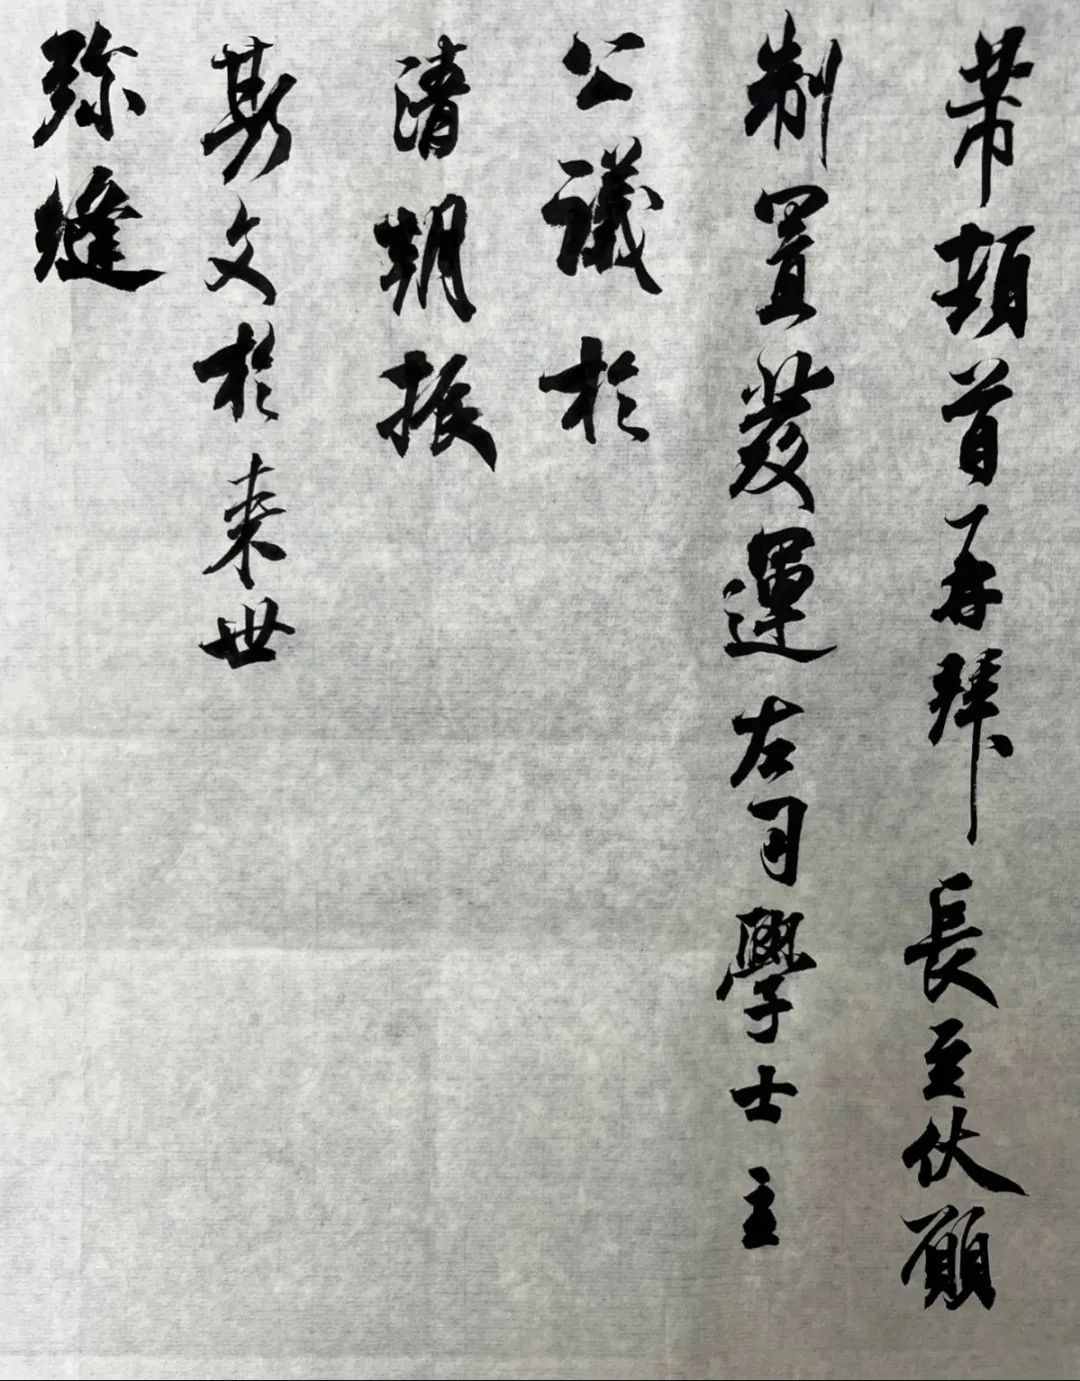 芾頓首再拜長至伏願
制置發運左司學士主
公議於
清朝振
斯文於来世
弥縫